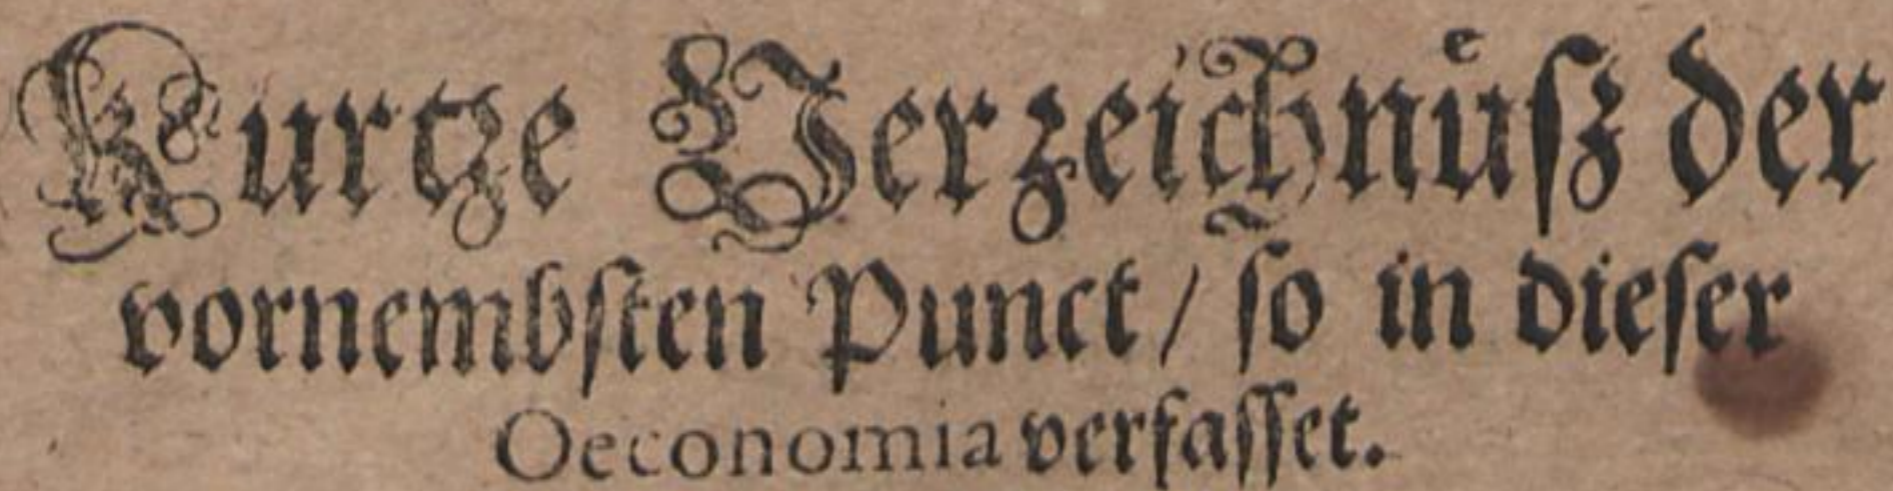 Kurtze Verzeichnuͤſz der
vornembſten Punct / ſo in dieſer
Oeconomia verfaſſet.